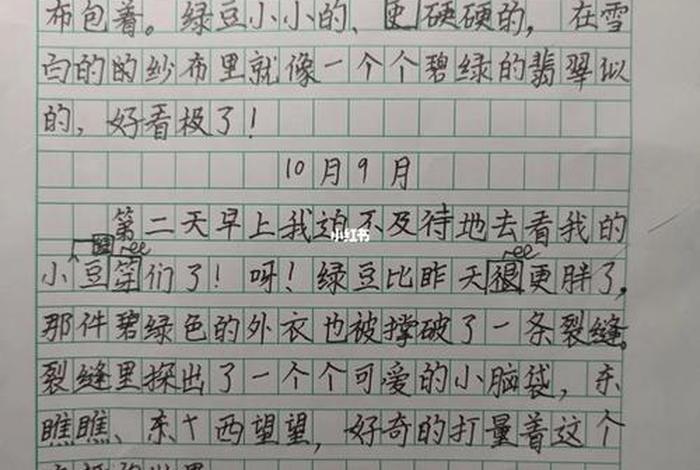 布包着。绿豆小小的、硬硬的，在雪
白的的纱布里就像一个个碧绿的翡翠似
的，好看极了！
10月9月
第二天早上我迫不及待地去看我的
小红书
小豆芽们了！呀！绿豆比昨天很更胖了，
那件碧绿色的外衣也被撑破了一条裂缝。
裂缝里探出了一个个可爱的小脑袋，东
瞧瞧、东西望望，好奇的打量着这个